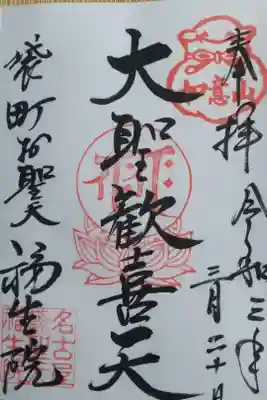 奉拝 令和三年
三月二十日
大聖歓喜天
袋町お聖天 福生院
如意山
名古屋
福生